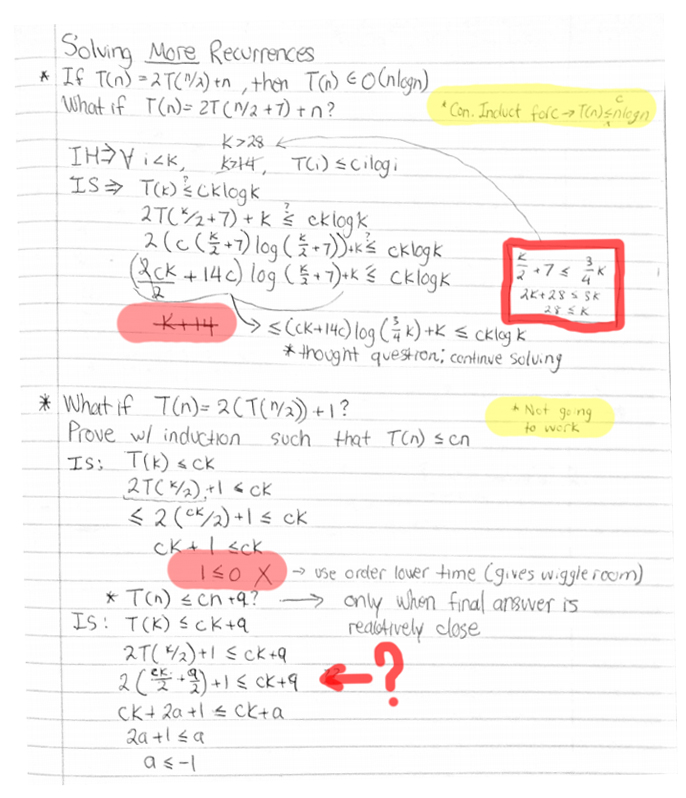 Solving More Recurrences
* If T(n) = 2T(n/2) + n, then T(n) ∈ O(nlogn)
What if T(n) = 2T(n/2 + 7) + n?
* Con. Induct for c → T(n) ≤ c nlogn
IH ⇒ ∀ i < k, k > 28 k > 14, T(i) ≤ cilogi
IS ⇒ T(k) ≤? cklogk
2T(k/2 + 7) + k ≤? cklogk
2(c(k/2 + 7) log(k/2 + 7)) + k ≤? cklogk
(2ck/2 + 14c) log(k/2 + 7) + k ≤ cklogk
k/2 + 7 ≤ 3/4 k
2k + 28 ≤ 3k
28 ≤ k
k + 14 → ≤ (ck + 14c) log(3/4 k) + k ≤ cklogk
* thought question; continue solving
* What if T(n) = 2(T(n/2)) + 1?
* Not going
to work
Prove w/ induction such that T(n) ≤ cn
IS: T(k) ≤ ck
2T(k/2) + 1 ≤ ck
≤ 2(ck/2) + 1 ≤ ck
ck + 1 ≤ ck
1 ≤ 0 X → use order lower time (gives wiggle room)
* T(n) ≤ cn + a? → only when final answer is
realotively close
IS: T(k) ≤ ck + a
2T(k/2) + 1 ≤ ck + a
2(ck/2 + a/2) + 1 ≤ ck + a ← ?
ck + 2a + 1 ≤ ck + a
2a + 1 ≤ a
a ≤ -1